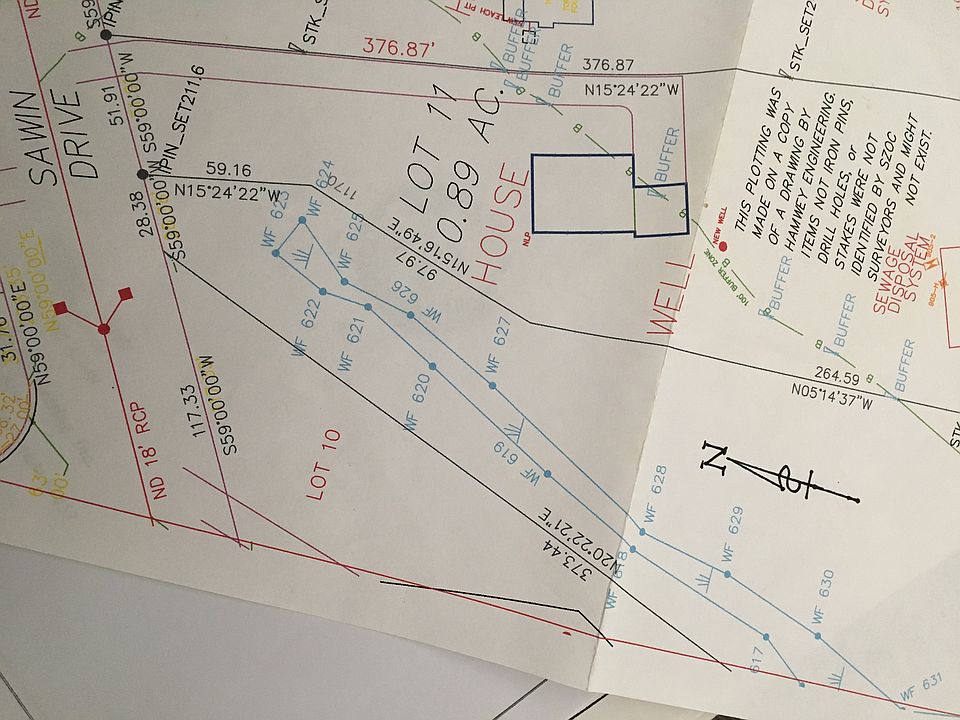 SAWIN
DRIVE
51.91
S59°00'00"W
IPIN_SET211.6
28.38
S59°00'00"W
59.16
N15°24'22"W
376.87'
376.87
N15°24'22"W
STK_SET2
BUFFER
BUFFER
BUFFER
B
B
NEW LEACH PIT
LOT 11
0.89 AC.
HOUSE
NLP
WELL
NEW WELL
100' BUFFER ZONE
BUFFER
B
B
BUFFER
BUFFER
BUFFER
B
B
B
THIS PLOTTING WAS
MADE ON A COPY
OF A DRAWING BY
HAMWEY ENGINEERING.
ITEMS NOT IRON PINS,
DRILL HOLES, or
STAKES WERE NOT
IDENTIFIED BY SZOC
SURVEYORS AND MIGHT
NOT EXIST.
SEWAGE
DISPOSAL
SYSTEM
N15°16'49"E
97.97
264.59
N05°14'37"W
STK
WF 623
WF 624
WF 625
WF 626
WF 627
WF 622
WF 621
WF 620
WF 619
WF 628
WF 629
WF 630
WF 631
617
N59°00'00"E
N59°00'00"E
117.33
S59°00'00"W
ND 18' RCP
LOT 10
N20°22'21"E
373.44
N